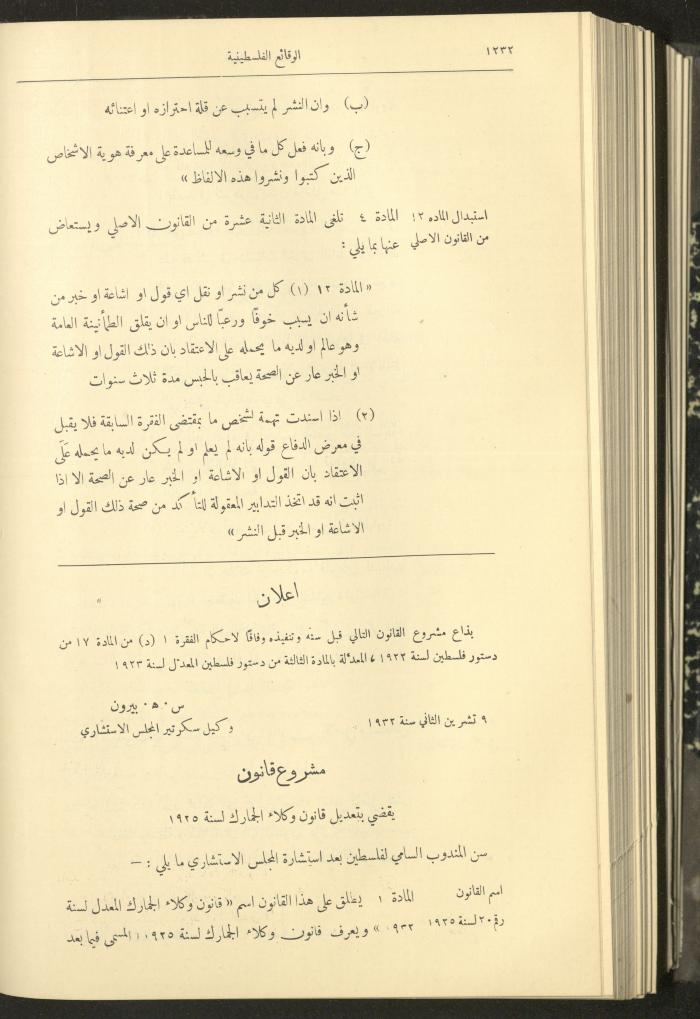 ١٢٣٢
الوقائع الفلسطينية
(ب) وان النشر لم يتسبب عن قلة احترازه او اعتنائه
(ج) وبانه فعل كل ما في وسعه للمساعدة على معرفة هوية الاشخاص
الذين كتبوا ونشروا هذه الالفاظ »
استبدال الماده ١٢ المادة ٤ تلغى المادة الثانية عشرة من القانون الاصلي ويستعاض
من القانون الاصلي عنها بما يلي :
« المادة ١٢ (١) كل من نشر او نقل اي قول او اشاعة او خبر من
شأنه ان يسبب خوفًا ورعبًا للناس او ان يقلق الطمأنينة العامة
وهو عالم او لديه ما يحمله على الاعتقاد بان ذلك القول او الاشاعة
او الخبر عار عن الصحة يعاقب بالحبس مدة ثلاث سنوات
(٢) اذا اسندت تهمة لشخص ما بمقتضى الفقرة السابقة فلا يقبل
في معرض الدفاع قوله بانه لم يعلم او لم يكن لديه ما يحمله عَلَى
الاعتقاد بان القول او الاشاعة او الخبر عار عن الصحة الا اذا
اثبت انه قد اتخذ التدابير المعقولة للتأكد من صحة ذلك القول او
الاشاعة او الخبر قبل النشر »
اعلان
يذاع مشروع القانون التالي قبل سنه وتنفيذه وفاقًا لاحكام الفقرة ١ (د) من المادة ١٧ من
دستور فلسطين لسنة ١٩٢٢ ، المعدلة بالمادة الثالثة من دستور فلسطين المعدل لسنة ١٩٢٣
س . ه . بيرون
٩ تشرين الثاني سنة ١٩٣٢ وكيل سكرتير المجلس الاستشاري
مشروع قانون
يقضي بتعديل قانون وكلاء الجمارك لسنة ١٩٢٥
سن المندوب السامي لفلسطين بعد استشارة المجلس الاستشاري ما يلي : —
اسم القانون المادة ١ يطلق على هذا القانون اسم « قانون وكلاء الجمارك المعدل لسنة
رقم ٢٠ لسنة ١٩٢٥ ١٩٣٢ » ويعرف قانون وكلاء الجمارك لسنة ١٩٢٥ ، المسمى فيما بعد